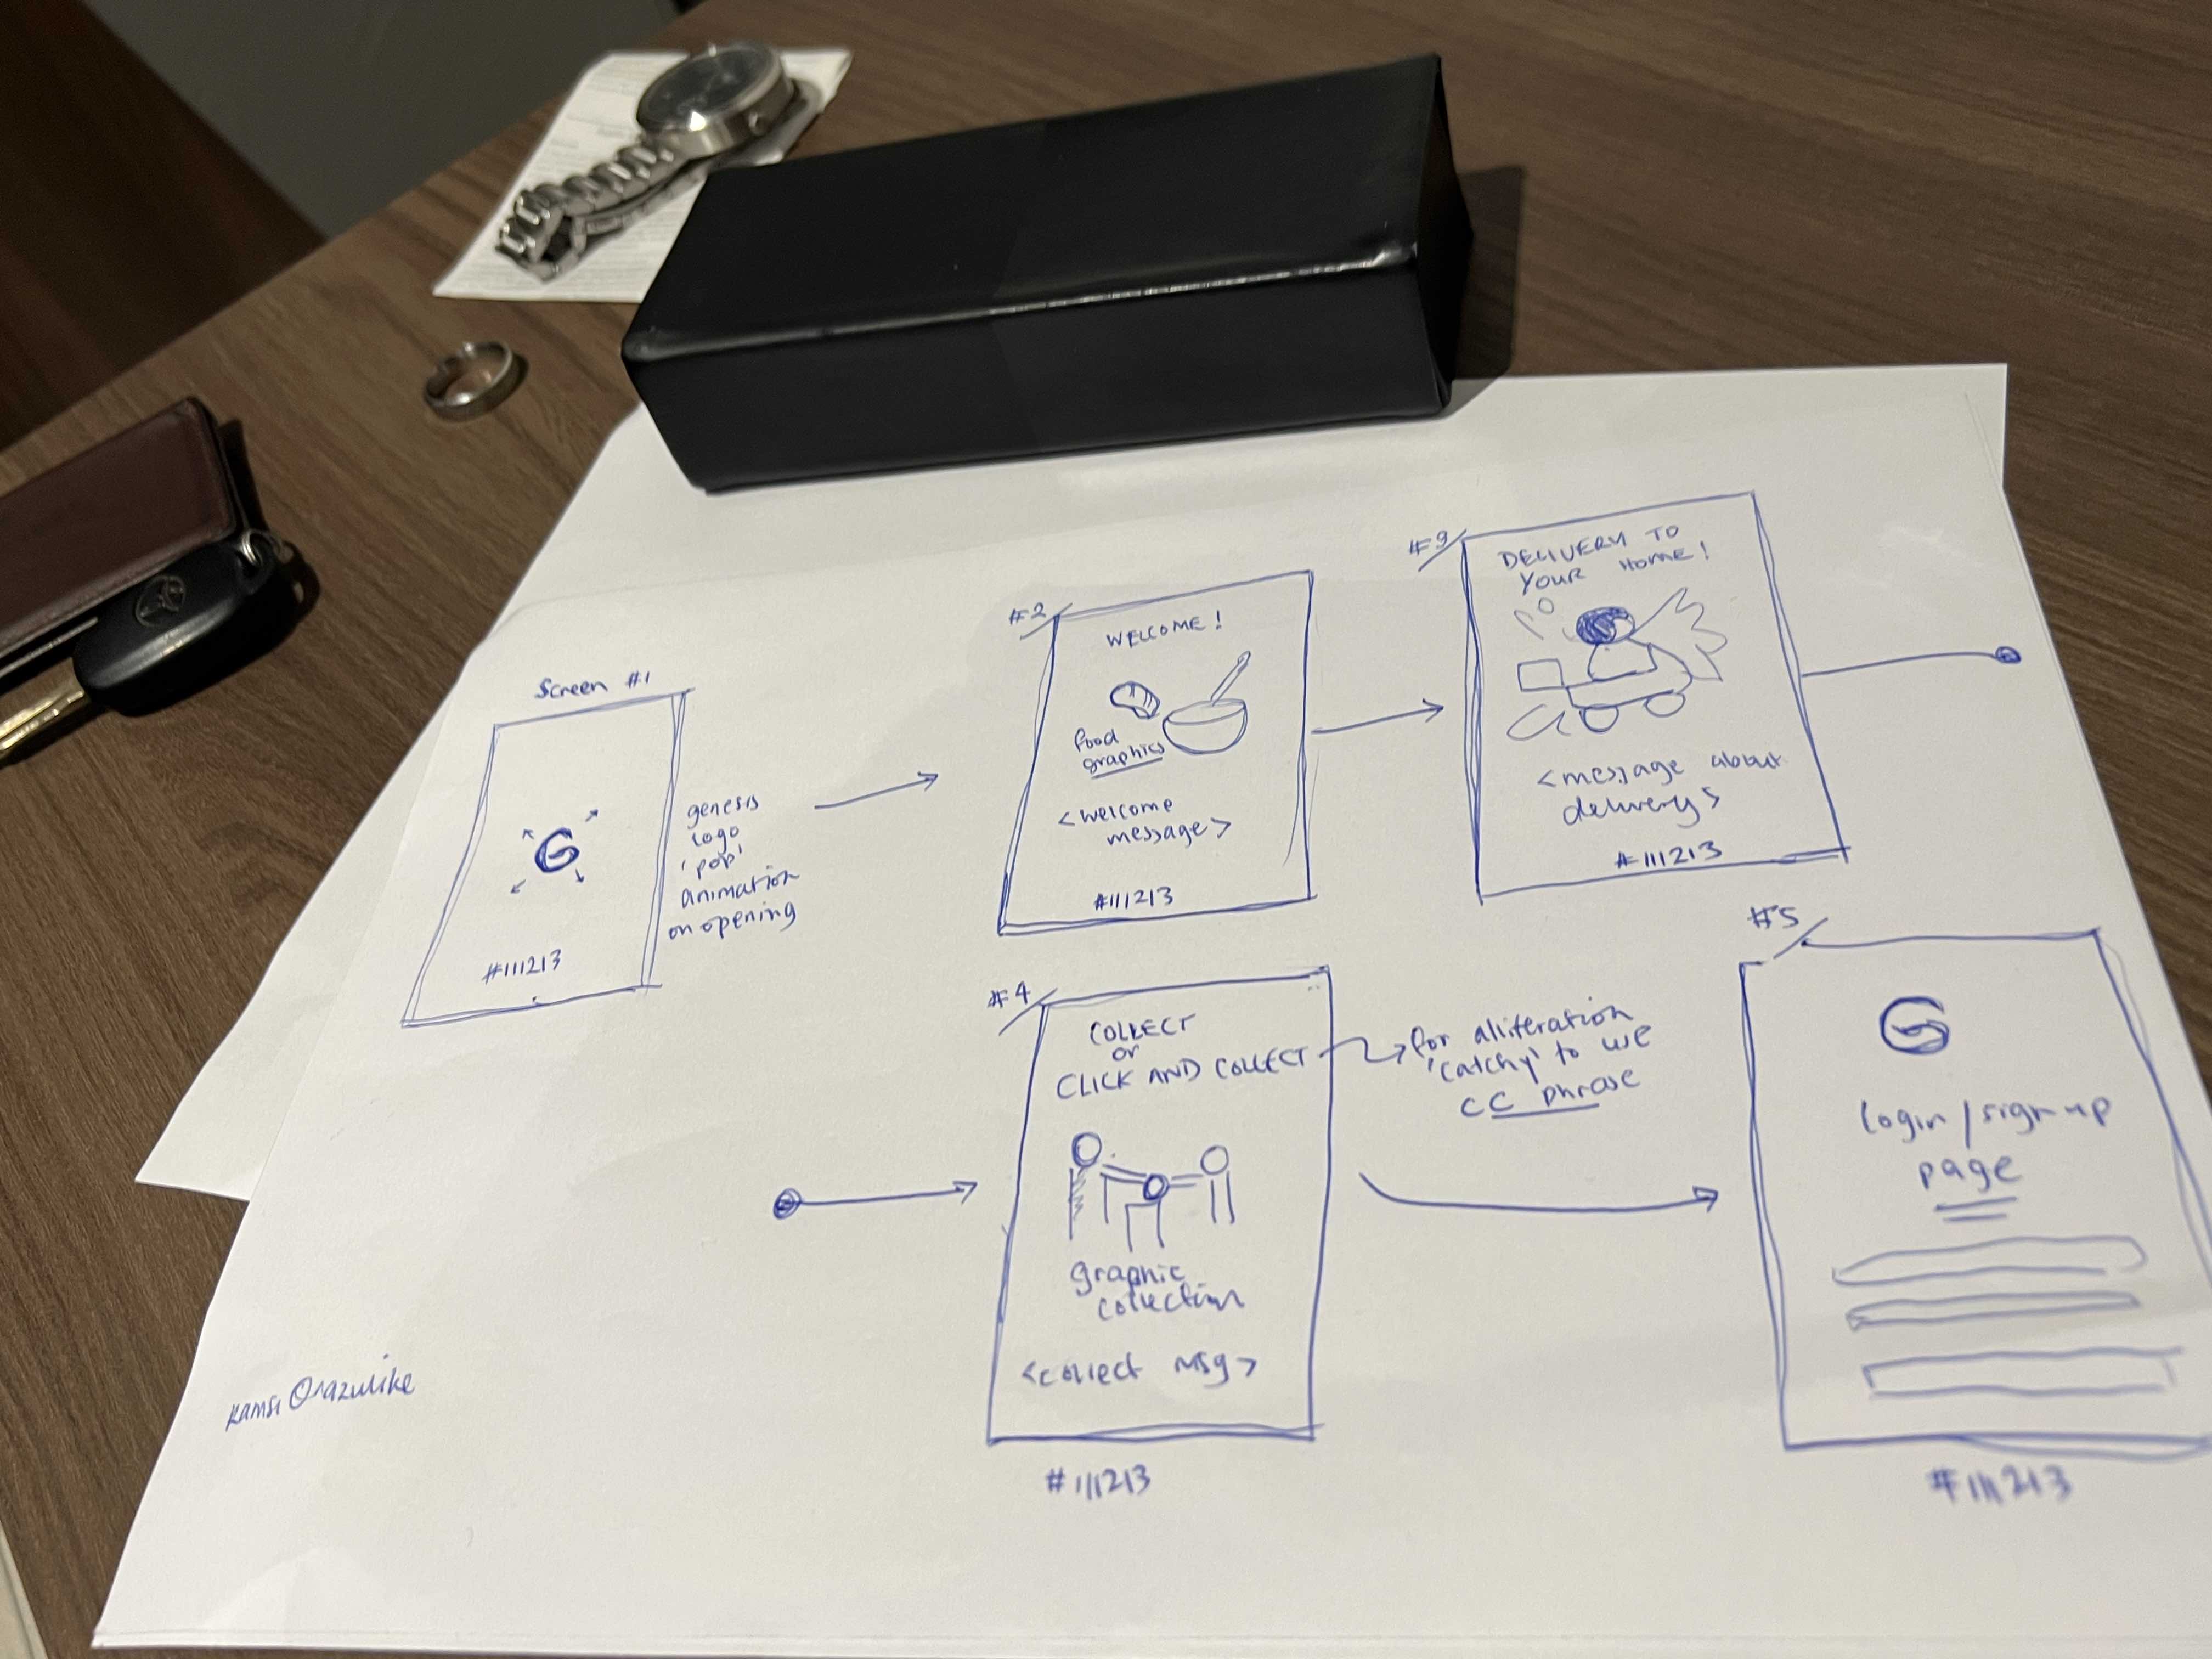 Screen #1
genesis
logo
'pop'
animation
on opening
#111213
#2
WELCOME!
food
graphics
<welcome
message>
#111213
#3
DELIVERY TO
YOUR HOME!
<message about
delivery>
#111213
#4
COLLECT
or
CLICK AND COLLECT
for alliteration
'catchy' to we
CC phrase
graphic
collection
<collect msg>
#111213
#5
login/sign-up
page
#111213